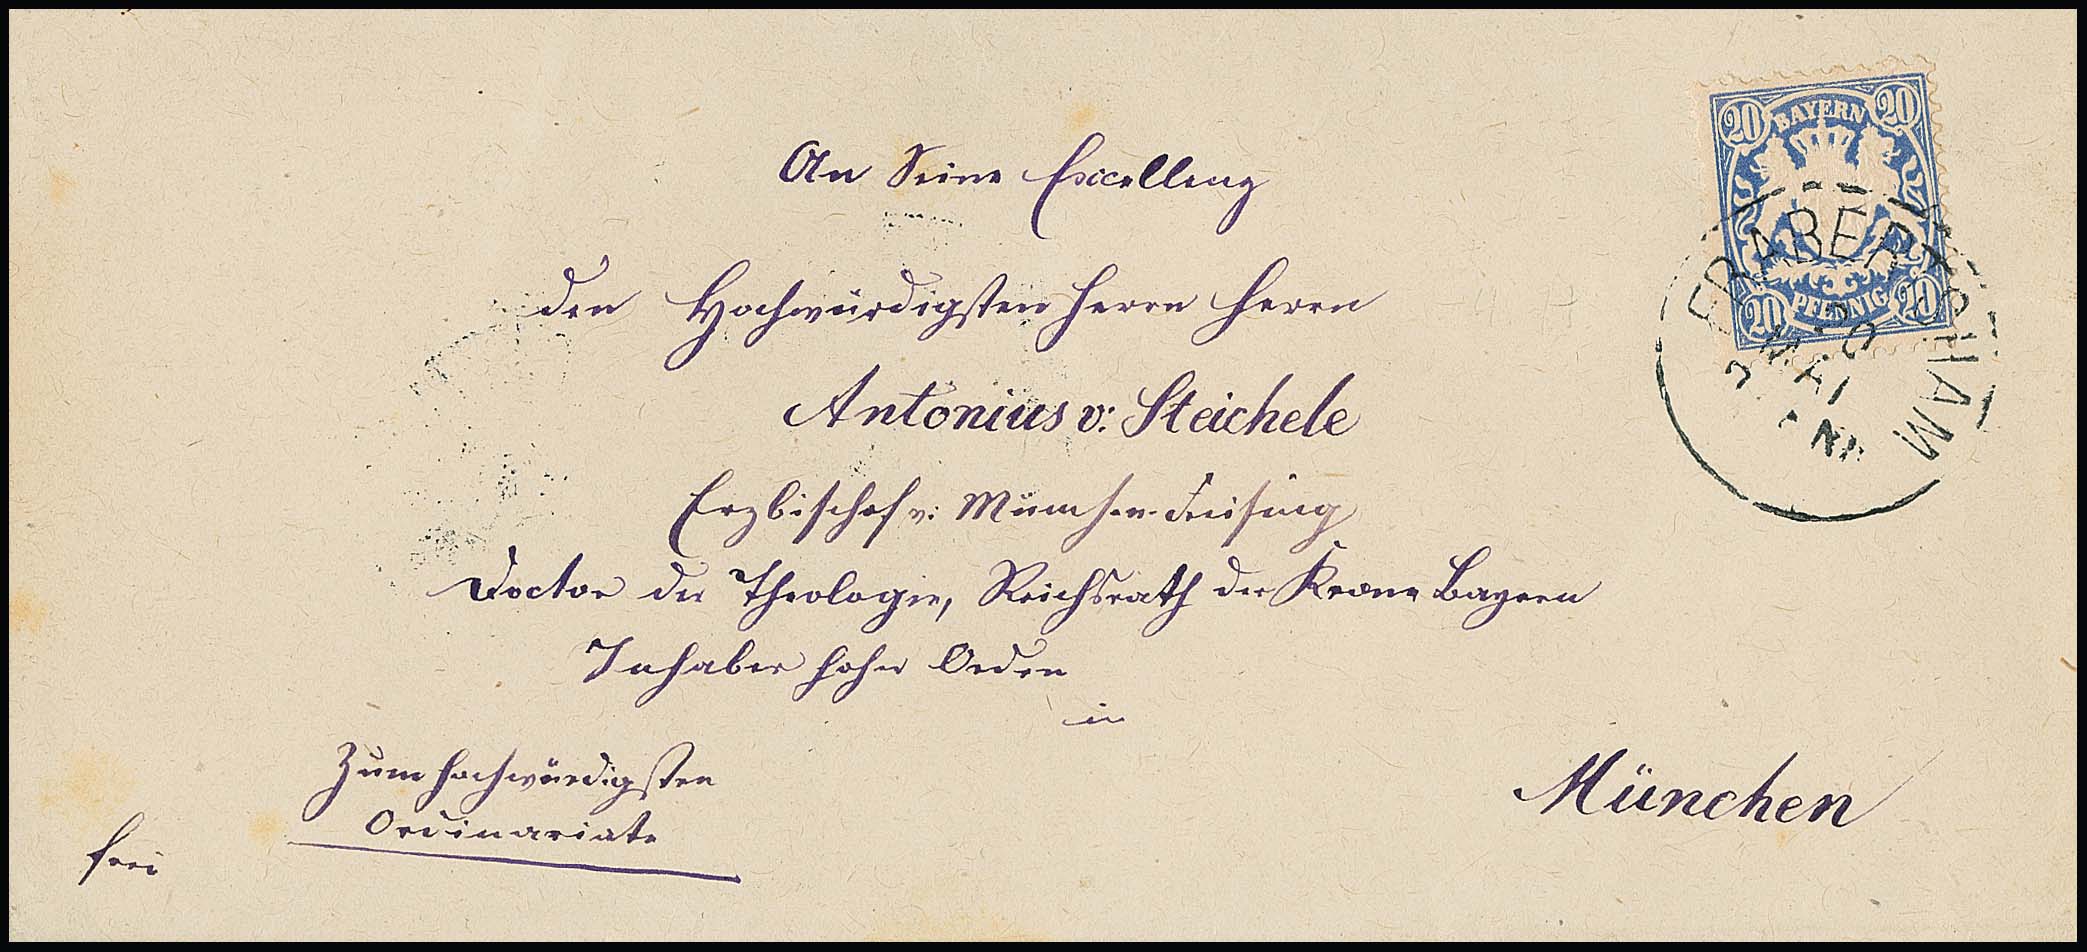 An Seine Excellenz
den Hochwürdigsten Herrn Herrn
Antonius v: Steichele
Erzbischof v: München-Freising
Doctor der Theologie, Reichsrath der Krone Bayern
Inhaber hoher Orden
in
München
Zum hochwürdigsten
Ordinariate
frei
20 BAYERN 20
20 PFENNIG 20
FRABERTSHAM
20
MAI